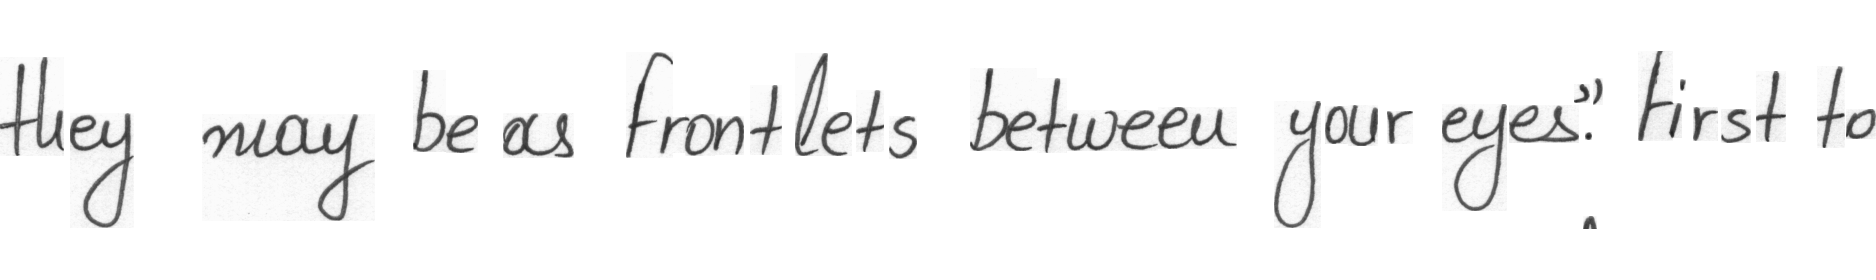 they may be as frontlets between your eyes." First to